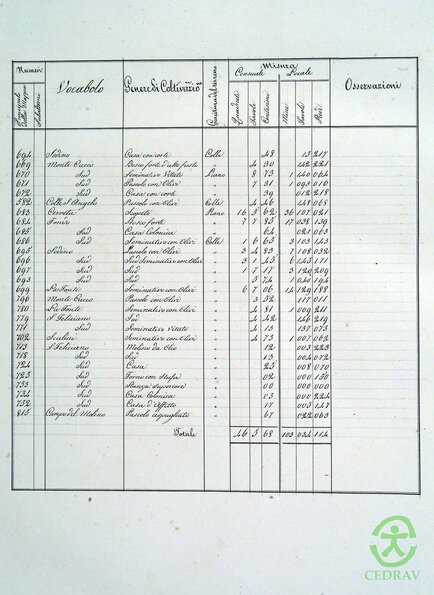 Numeri
Vocabolo
Genere di Coltivazione
Misura
Censuale
Locale
Osservazioni
Quadrati
Tavole
Centesimi
694 Casa con corte Colle 48 13 217
669 Monte Cucco Bosco forte d'alto fusto 4 30 142 221
670 Sud Seminativo Vitato Piano 8 73 1 140 064
671 Sud Pascolo con Olivi 7 31 1 093 016
672 Sud Casa con corte 39 012 218
582 Colle S. Angelo Pascolo con Olivi Colle 4 46 148 068
683 Cerreta Piano 16 3 62 36 107 021
684 Bosco forte 7 7 85 17 038 139
685 Sud Casa Colonica 64 021 063
686 Sud Seminativo con Olivi Colle 1 6 63 3 103 143
695 Pascolo con Olivi 3 4 83 7 108 032
696 Sud Seminativo con Olivi 3 1 43 6 143 171
697 Sud Sud 1 7 17 3 129 209
693 Sud Sud 3 74 140 194
699 La Fonte Seminativo con Olivi 6 7 06 14 129 188
796 Monte Cucco Pascolo con Olivi 3 32 117 011
780 La Fonte Seminativo con Olivi 4 81 1 009 211
779 S. Feliciano Sud 4 42 146 219
771 Sud Seminativo Vitato 4 13 137 073
702 Seminativo con Olivi 4 73 1 007 062
713 S. Feliciano Molino da Olio 12 003 223
718 Sud Sud 13 004 072
724 Sud Casa 25 008 070
725 Sud Forno con Stufa 02 000 150
733 Sud Stanza superiore 00 000 000
734 Sud Casa Colonica 03 000 224
752 Sud Casa d'Affitto 17 003 147
815 Campo del Molino Pascolo cespugliato 67 022 063
Totale 46 5 68 103 034 114
CEDRAV